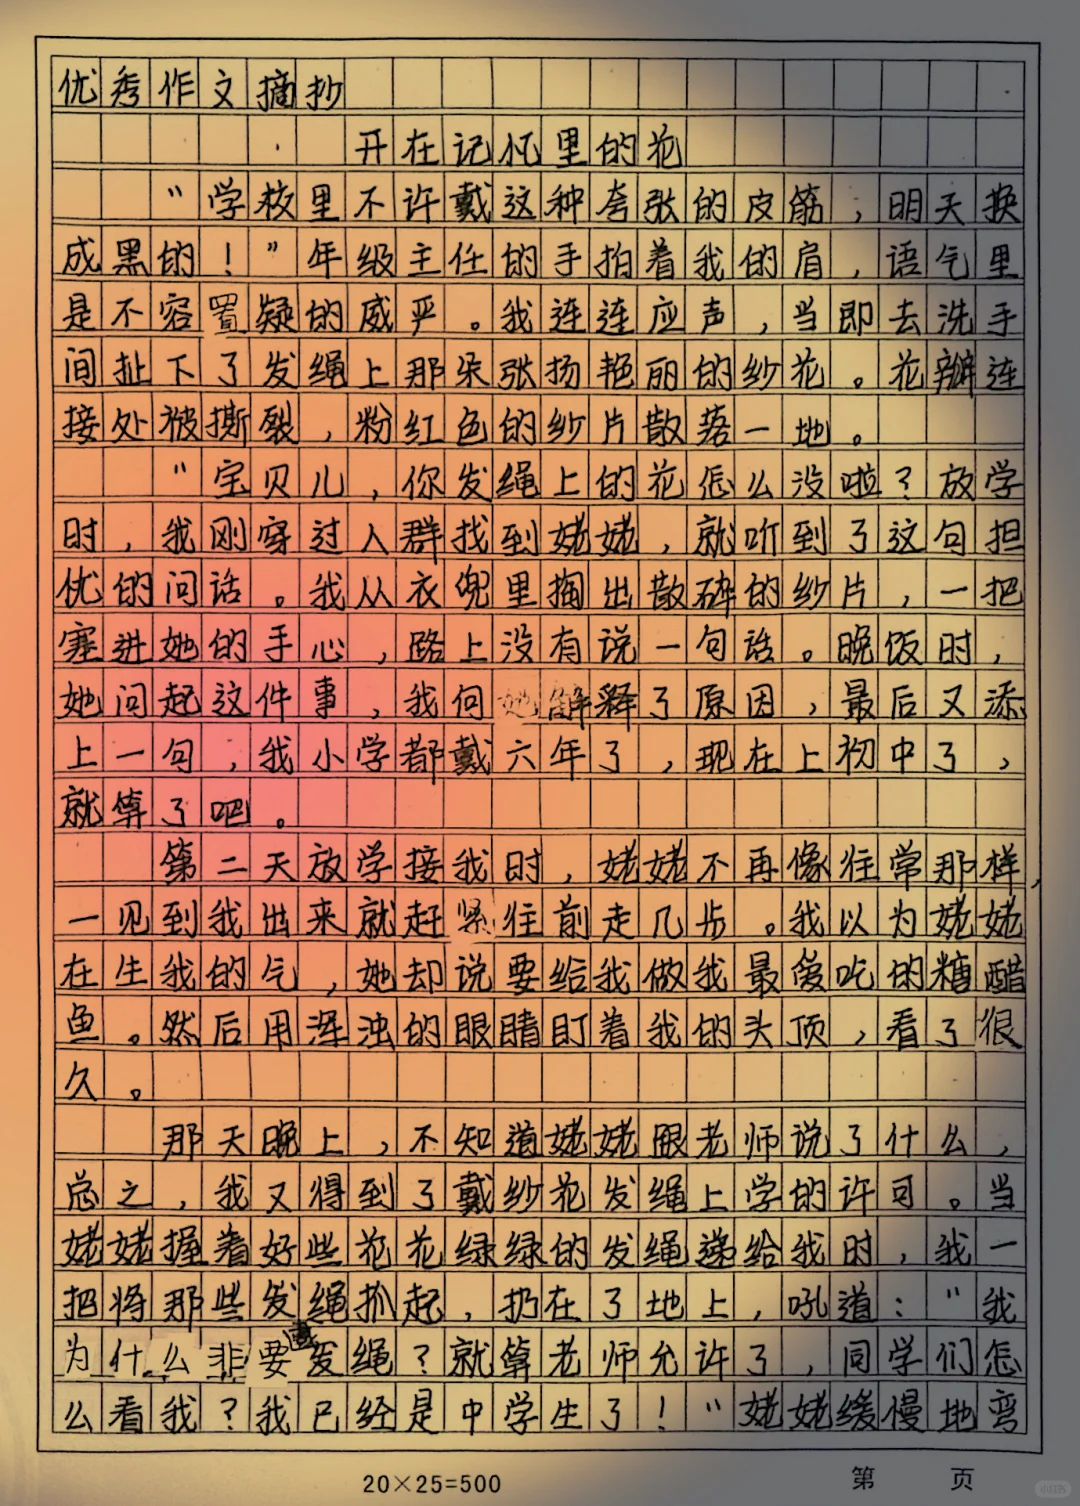 优秀作文摘抄
开在记忆里的花
"学校里不许戴这种夸张的皮筋，明天换
成黑的！"年级主任的手拍着我的肩，语气里
是不容置疑的威严。我连连应声，当即去洗手
间扯下了发绳上那朵张扬艳丽的纱花。花瓣连
接处被撕裂，粉红色的纱片散落一地。
"宝贝儿，你发绳上的花怎么没啦？放学
时，我刚穿过人群找到姥姥，就听到了这句担
优的问话。我从衣兜里掏出散碎的纱片，一把
塞进她的手心，路上没有说一句话。晚饭时，
她问起这件事，我向她解释了原因，最后又添
上一句，我小学都戴六年了，现在上初中了，
就算了吧。
第二天放学接我时，姥姥不再像往常那样，
一见到我出来就赶紧往前走几步。我以为姥姥
在生我的气，她却说要给我做我最爱吃的糖醋
鱼。然后用浑浊的眼睛盯着我的头顶，看了很
久。
那天晚上，不知道姥姥跟老师说了什么，
总之，我又得到了戴纱花发绳上学的许可。当
姥姥握着好些花花绿绿的发绳递给我时，我一
把将那些发绳抓起，扔在了地上，吼道："我
为什么非要戴发绳？就算老师允许了，同学们怎
么看我？我已经是中学生了！"姥姥缓慢地弯
20×25=500
第 页
小红书